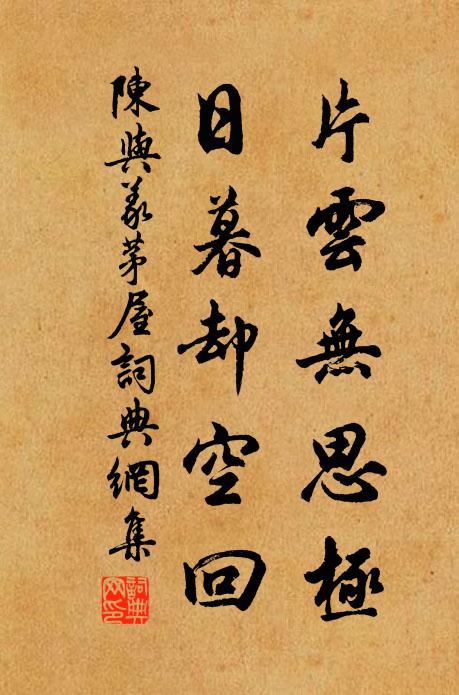 片雲無思極
日暮却空回
陳與義茅屋詞典網集
詞典网印